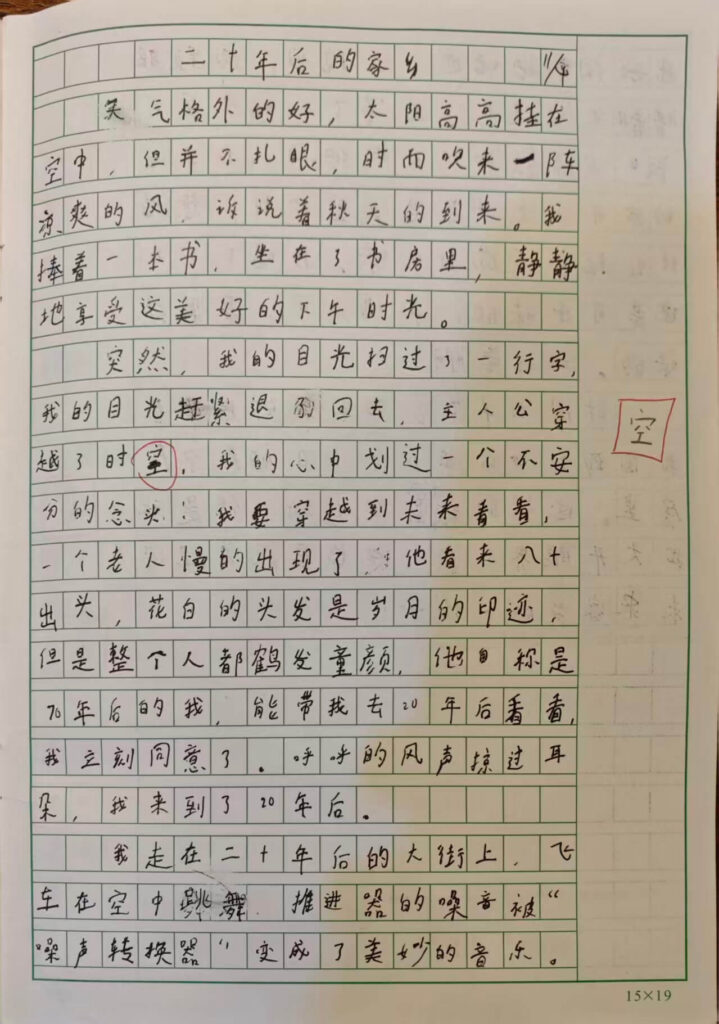 二十年后的家乡 11/4
天气格外的好，太阳高高挂在
空中，但并不扎眼，时而吹来一阵
凉爽的风，诉说着秋天的到来。我
捧着一本书，坐在了书房里，静静
地享受这美好的下午时光。
突然，我的目光扫过了一行字，
我的目光赶紧退到回去，主人公穿
越了时空，我的心中划过一个不安
分的念头：我要穿越到未来看看，
一个老人慢的出现了，他看来八十
出头，花白的头发是岁月的印迹，
但是整个人都鹤发童颜，他自称是
70年后的我，能带我去20年后看看，
我立刻同意了。呼呼的风声掠过耳
朵，我来到了20年后。
我走在二十年后的大街上，飞
车在空中跳舞，推进器的噪音被“
噪声转换器”变成了美妙的音乐。
空
15×19